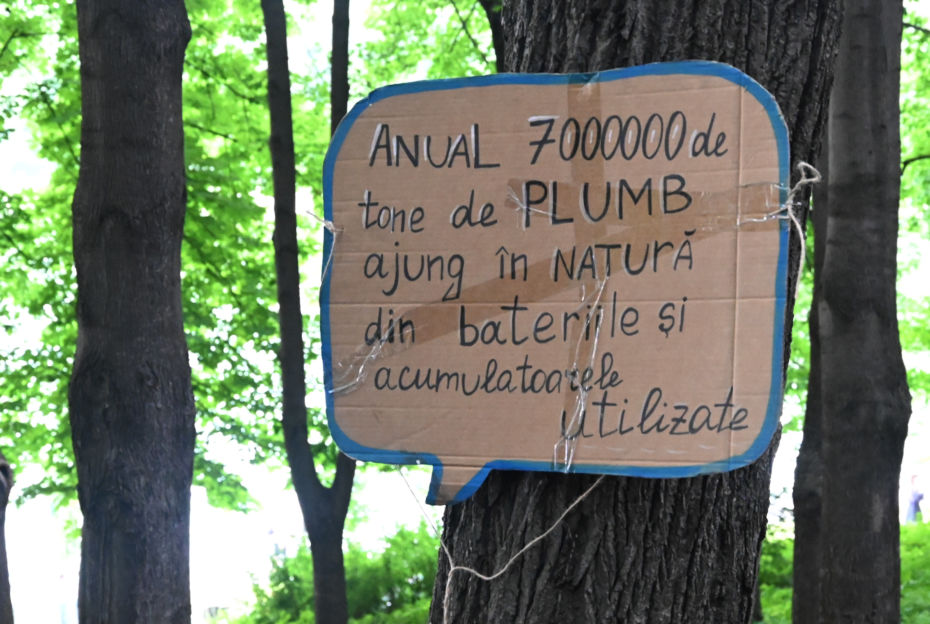 ANUAL 7000000 de
tone de PLUMB
ajung în NATURĂ
din bateriile și
acumulatoarele
utilizate